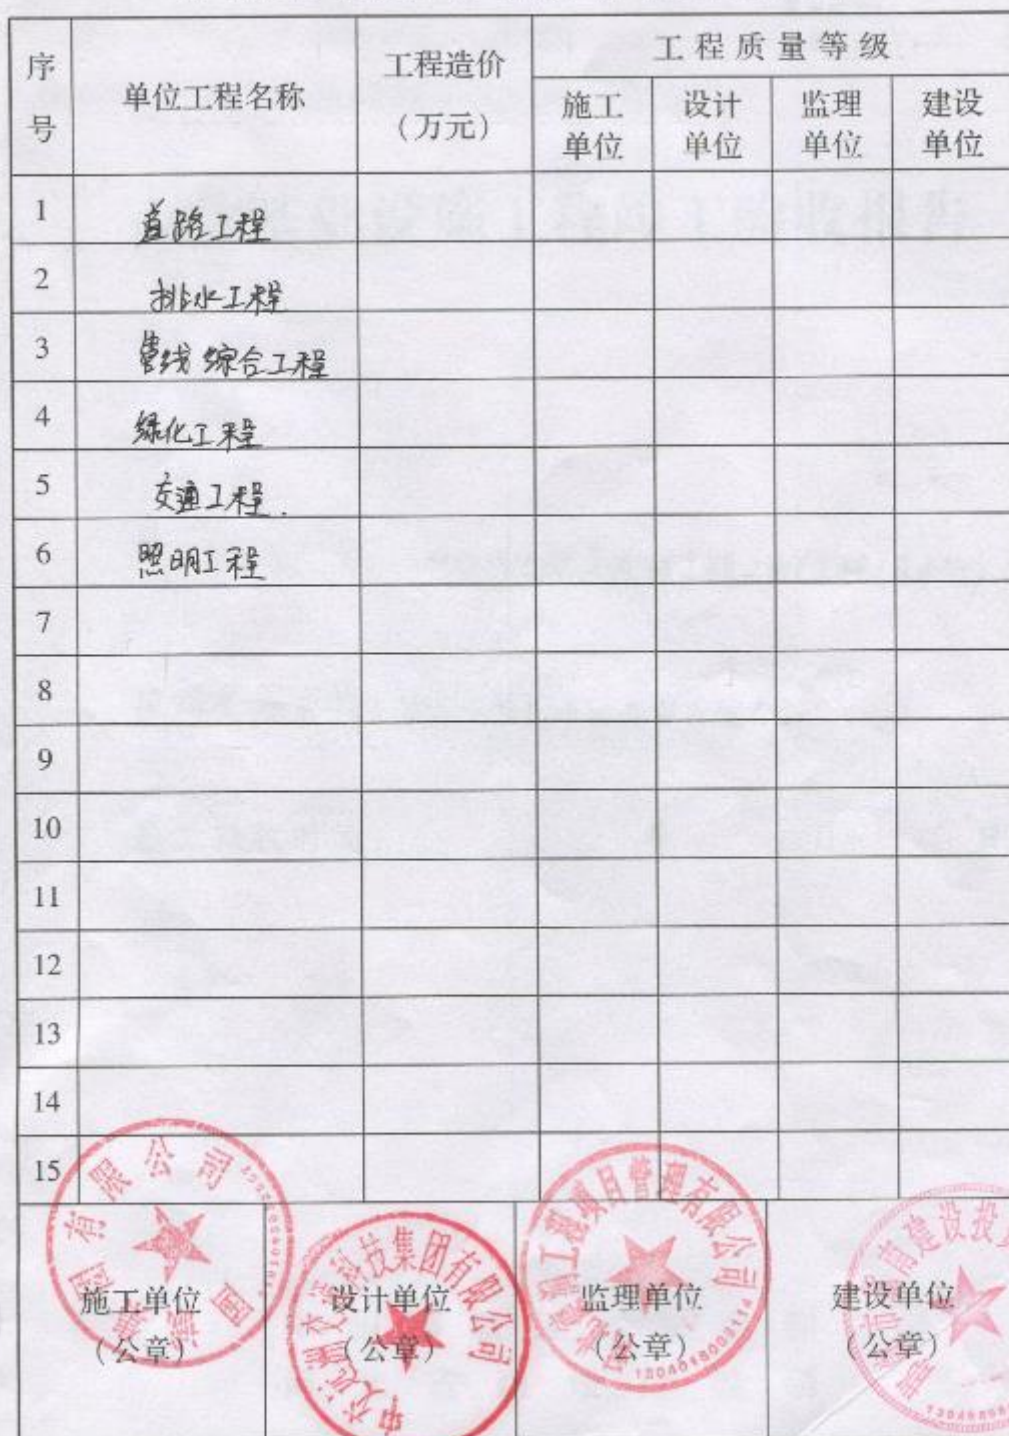 序号 单位工程名称 工程造价（万元） 工程质量等级
施工单位 设计单位 监理单位 建设单位
1 道路工程
2 排水工程
3 管线综合工程
4 绿化工程
5 交通工程.
6 照明工程
7
8
9
10
11
12
13
14
15
施工单位（公章） 设计单位（公章） 监理单位（公章） 建设单位（公章）
集团有限公司
中交远洲交通科技集团有限公司
工程项目管理有限公司
建设投